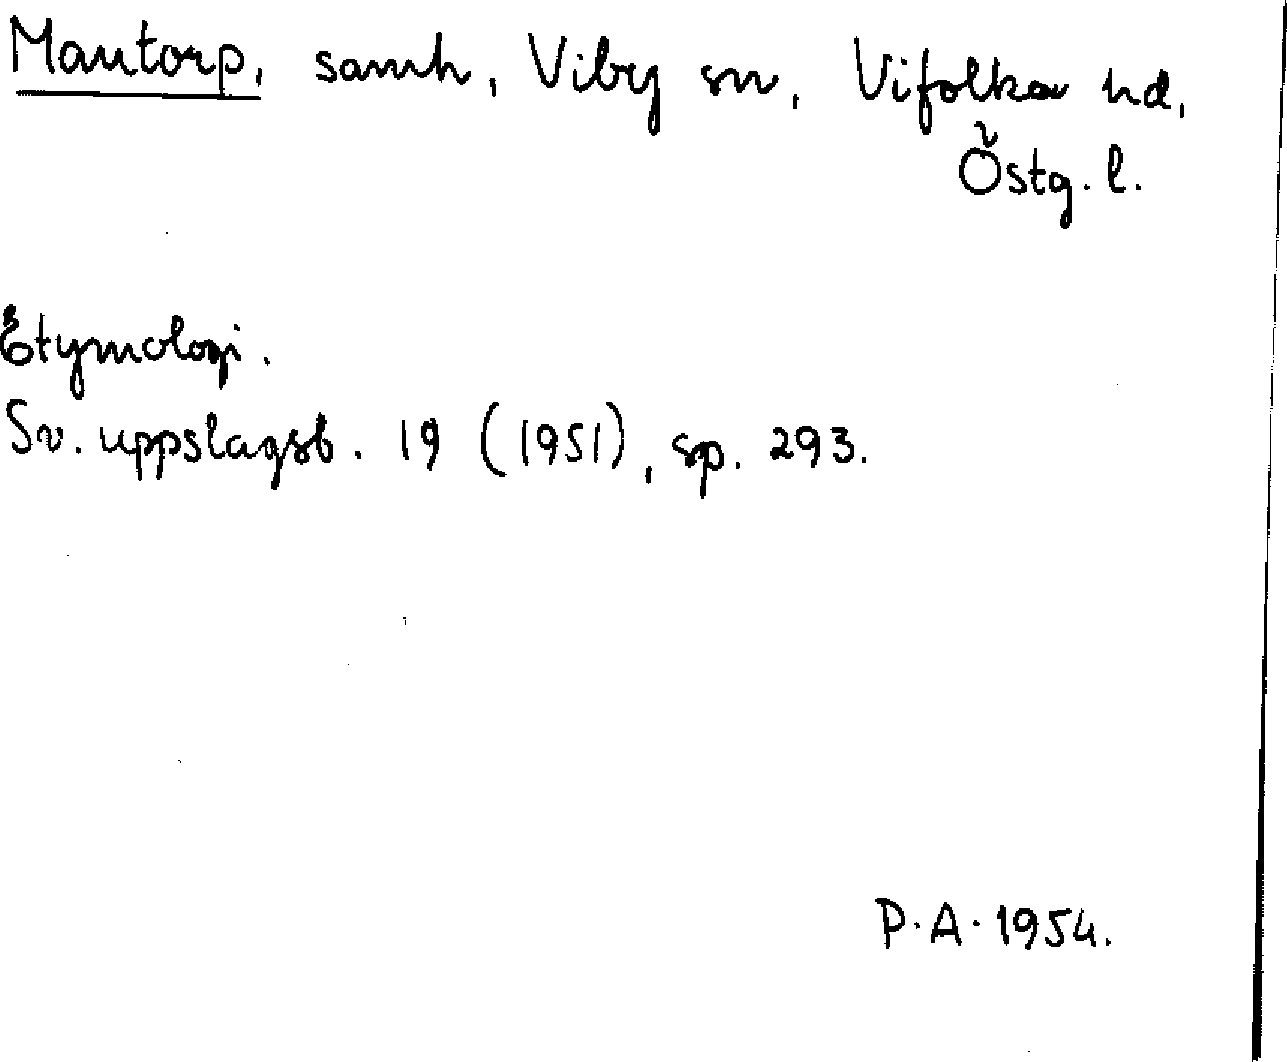 Mantorp, samh, Viby sn, Vifolka hd,
Östg. l.
Etymologi.
Sv. uppslagsb. 19 (1951), sp. 293.
P.A. 1954.